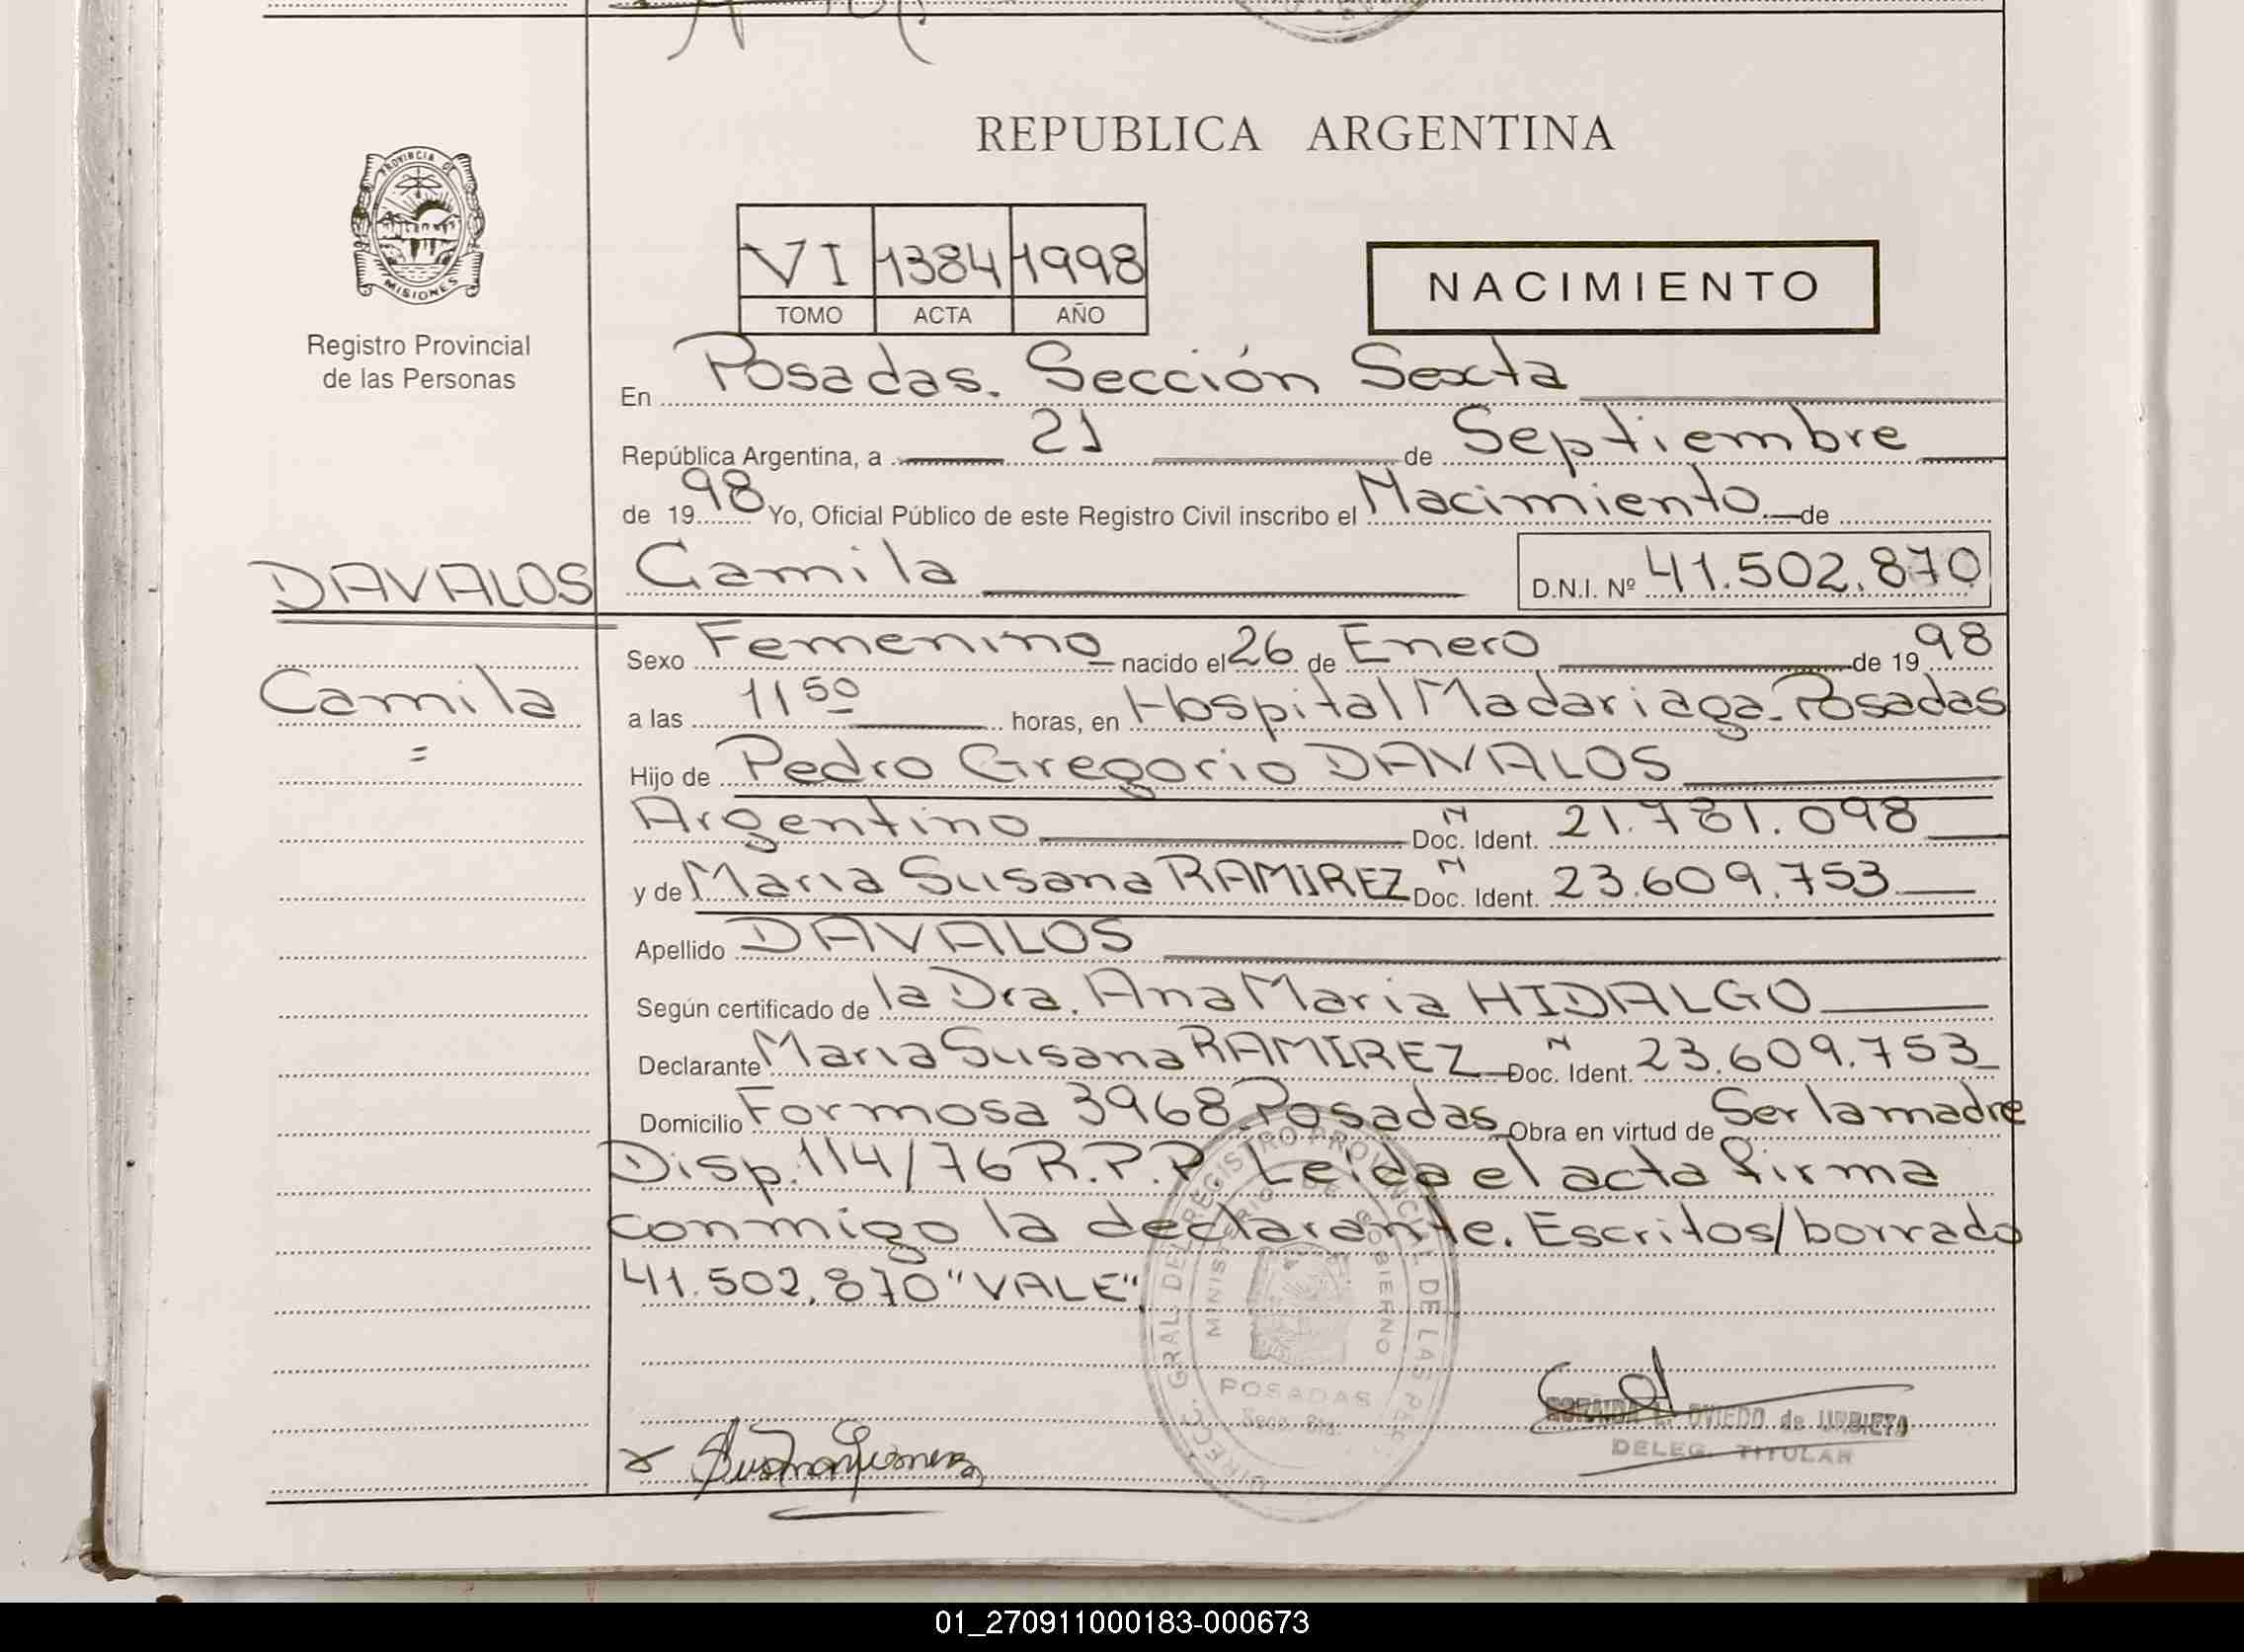 REPUBLICA ARGENTINA
PROVINCIA DE MISIONES
Registro Provincial
de las Personas
VI 1384 1998
TOMO ACTA AÑO
NACIMIENTO
En Posadas. Sección Sexta
República Argentina, a 21 de Septiembre
de 1998 Yo, Oficial Público de este Registro Civil inscribo el Nacimiento de
DAVALOS Camila D.N.I. Nº 41.502.870
Sexo Femenino nacido el 26 de Enero de 1998
Camila
a las 11 50 horas, en Hospital Madariaga-Posadas
Hijo de Pedro Gregorio DAVALOS
Argentino Doc. Ident. N 21.781.098
y de Maria Susana RAMIREZ Doc. Ident. N 23.609.753
Apellido DAVALOS
Según certificado de la Dra. Ana Maria HIDALGO
Declarante Maria Susana RAMIREZ Doc. Ident. N 23.609.753
Domicilio Formosa 3968-Posadas Obra en virtud de Ser la madre
Disp. 114/76 R.P.P. Leida el acta firma
conmigo la declarante. Escritos/borrado
41.502.870 "VALE".
DIRECC. GRAL. DEL REGISTRO PROVINCIAL DE LAS
MINISTERIO DE GOBIERNO
POSADAS
Secc. 6ta.
OVIEDO de URBIETA
DELEG. TITULAR
01_270911000183-000673